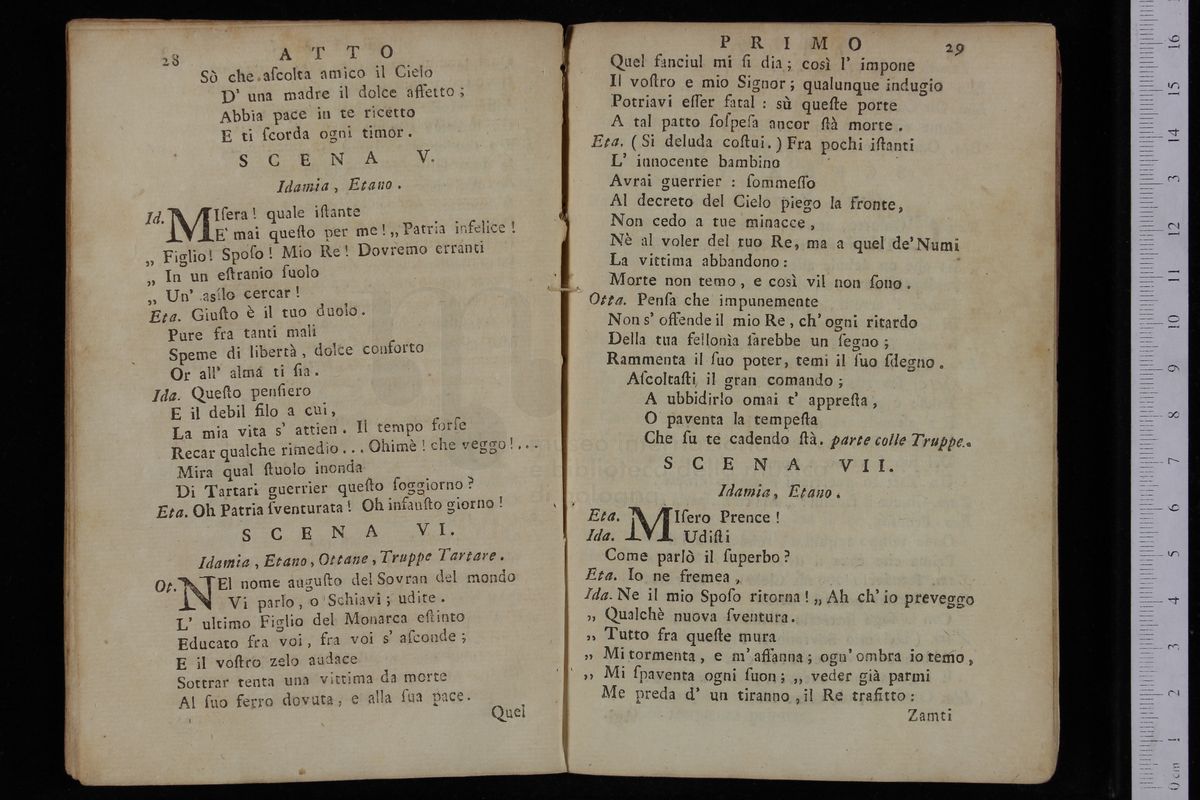 28
A T T O
Sò che aſcolta amico il Cielo
D' una madre il dolce affetto ;
Abbia pace in te ricetto
E ti ſcorda ogni timor .
S C E N A V.
Idamia , Etano .
Id. MIſera ! quale iſtante
E' mai queſto per me ! „ Patria infelice !
„ Figlio ! Spoſo ! Mio Re ! Dovremo erranti
„ In un eſtranio ſuolo
„ Un' asilo cercar !
Eta. Giuſto è il tuo duolo .
Pure fra tanti mali
Speme di libertà , dolce conforto
Or all' alma ti ſia .
Ida. Queſto penſiero
E il debil filo a cui ,
La mia vita s' attien . Il tempo forſe
Recar qualche rimedio . . . Ohimè ! che veggo ! . . .
Mira qual ſtuolo inonda
Di Tartari guerrier queſto ſoggiorno ?
Eta. Oh Patria ſventurata ! Oh infauſto giorno !
S C E N A VI.
Idamia , Etano , Ottane , Truppe Tartare .
Ot. NEl nome auguſto del Sovran del mondo
Vi parlo , o Schiavi ; udite .
L' ultimo Figlio del Monarca eſtinto
Educato fra voi , fra voi s' aſconde ;
E il voſtro zelo audace
Sottrar tenta una vittima da morte
Al ſuo ferro dovuta , e alla ſua pace .
Quel
P R I M O
29
Quel fanciul mi ſi dia ; così l' impone
Il voſtro e mio Signor ; qualunque indugio
Potriavi eſſer fatal : sù queſte porte
A tal patto ſoſpeſa ancor ſtà morte .
Eta. ( Si deluda coſtui . ) Fra pochi iſtanti
L' innocente bambino
Avrai guerrier : ſommeſſo
Al decreto del Cielo piego la fronte ,
Non cedo a tue minacce ,
Nè al voler del tuo Re , ma a quel de' Numi
La vittima abbandono :
Morte non temo , e così vil non ſono .
Otta. Penſa che impunemente
Non s' offende il mio Re , ch' ogni ritardo
Della tua fellonìa ſarebbe un ſegno ;
Rammenta il ſuo poter , temi il ſuo ſdegno .
Aſcoltaſti il gran comando ;
A ubbidirlo omai t' appreſta ,
O paventa la tempeſta
Che ſu te cadendo ſtà . parte colle Truppe .
S C E N A VII.
Idamia , Etano .
Eta. MIſero Prence !
Ida. Udiſti
Come parlò il ſuperbo ?
Eta. Io ne fremea ,
Ida. Ne il mio Spoſo ritorna ! „ Ah ch' io preveggo
„ Qualchè nuova ſventura .
„ Tutto fra queſte mura
„ Mi tormenta , e m' affanna ; ogn' ombra io temo ,
„ Mi ſpaventa ogni ſuon ; „ veder già parmi
Me preda d' un tiranno , il Re trafitto :
Zamti
0 cm 1 2 3 4 5 6 7 8 9 10 11 12 13 14 15 16